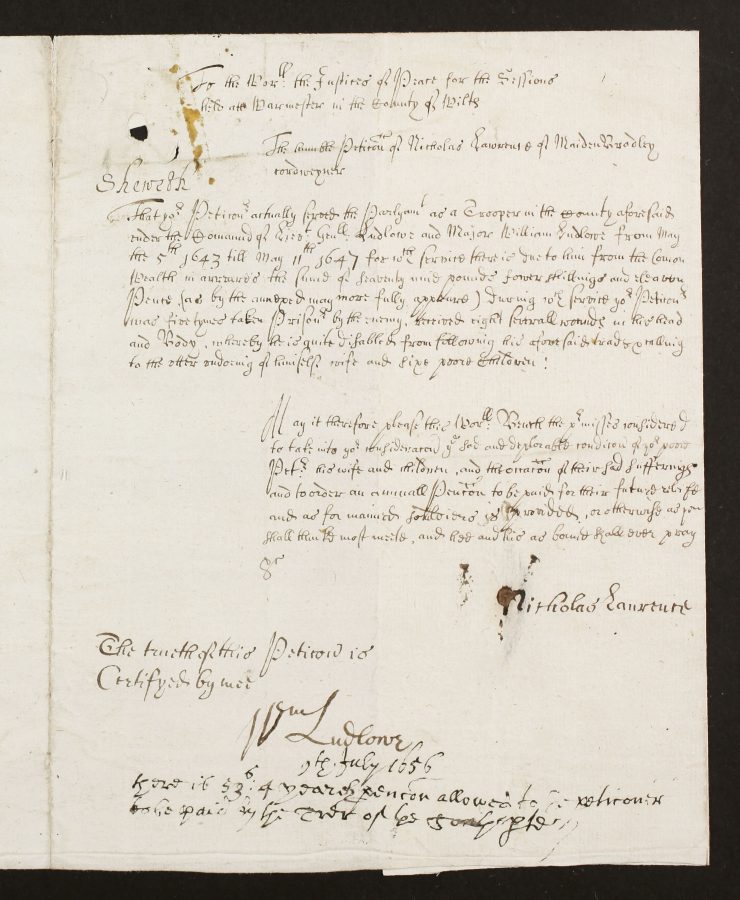 To the Wor:ll the Justices of Peace for the Sessions
held att Warmester in the County of Wiltẜ
The humble Petic̃on of Nicholas Lawrence of Maiden Brodley
cordweyner
Sheweth
That yor Peticon:r actually served the Parlyamt as a Trooper in the County aforesaid
under the Comaund of Lievt Genll: Ludlowe and Major William Ludlowe from May
the 5th 1643 till May 11th 1647 for wch service there is due to him from the Comon
Wealth in arreares the sumd of seaventy nine pounds fower shillings and eleaven
Pence (as by the annexed may more fully appeare) during wch service yor Peticon:r
was five tymes taken Prison:r by the enemy, received eight severall wounds in his head
and Body, whereby he is quite disabled from following his aforesaid trade & calling
to the utter undoeing of himself wife and sixe poore Children:
May it therefore please this Wor:ll Bench the p:rmisses considered
to take into yor consideracon ye sad and deplorable condicon of yor poore
Pet:r his wife and children, and the occac̃on of their sad sufferings
and to order an annuall Penc̃on to be paid for their future releife
and as for maimed souldiers is provided, or otherwise as you
shall thinke most meete, and hee and his as bound shall ever pray
&c
Nicholas Laurence
The trueth of this Peticon is
Certifyed by mee
Wm Ludlowe
9th July 1656
there is 53s 4 yearely pencon allowed to ye peticoner
to be paid by the Trer of ye pte